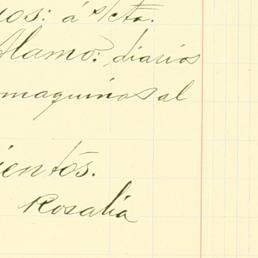 ios: á s/cta.
Alamo: diarios
maquinas al
ientos.
Rosalia